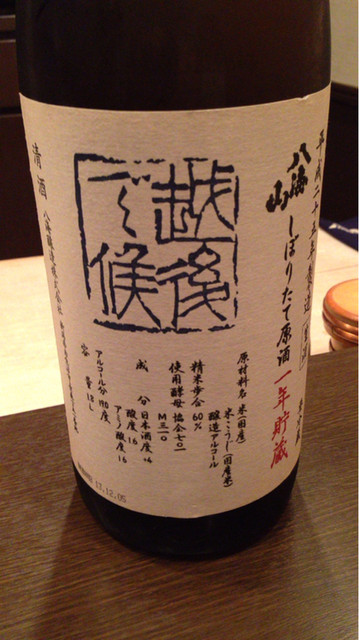 平成二十五年度造
八海山
しぼりたて原酒 一年貯蔵
越後
で候
原材料名 米(国産)
米こうじ(国産米)
醸造アルコール
精米歩合 60%
使用酵母 協会七〇一
M三一〇
成分 日本酒度
酸度
アミノ酸度
アルコール分
容量 1.8L
清酒 八海醸造株式会社
13.12.05